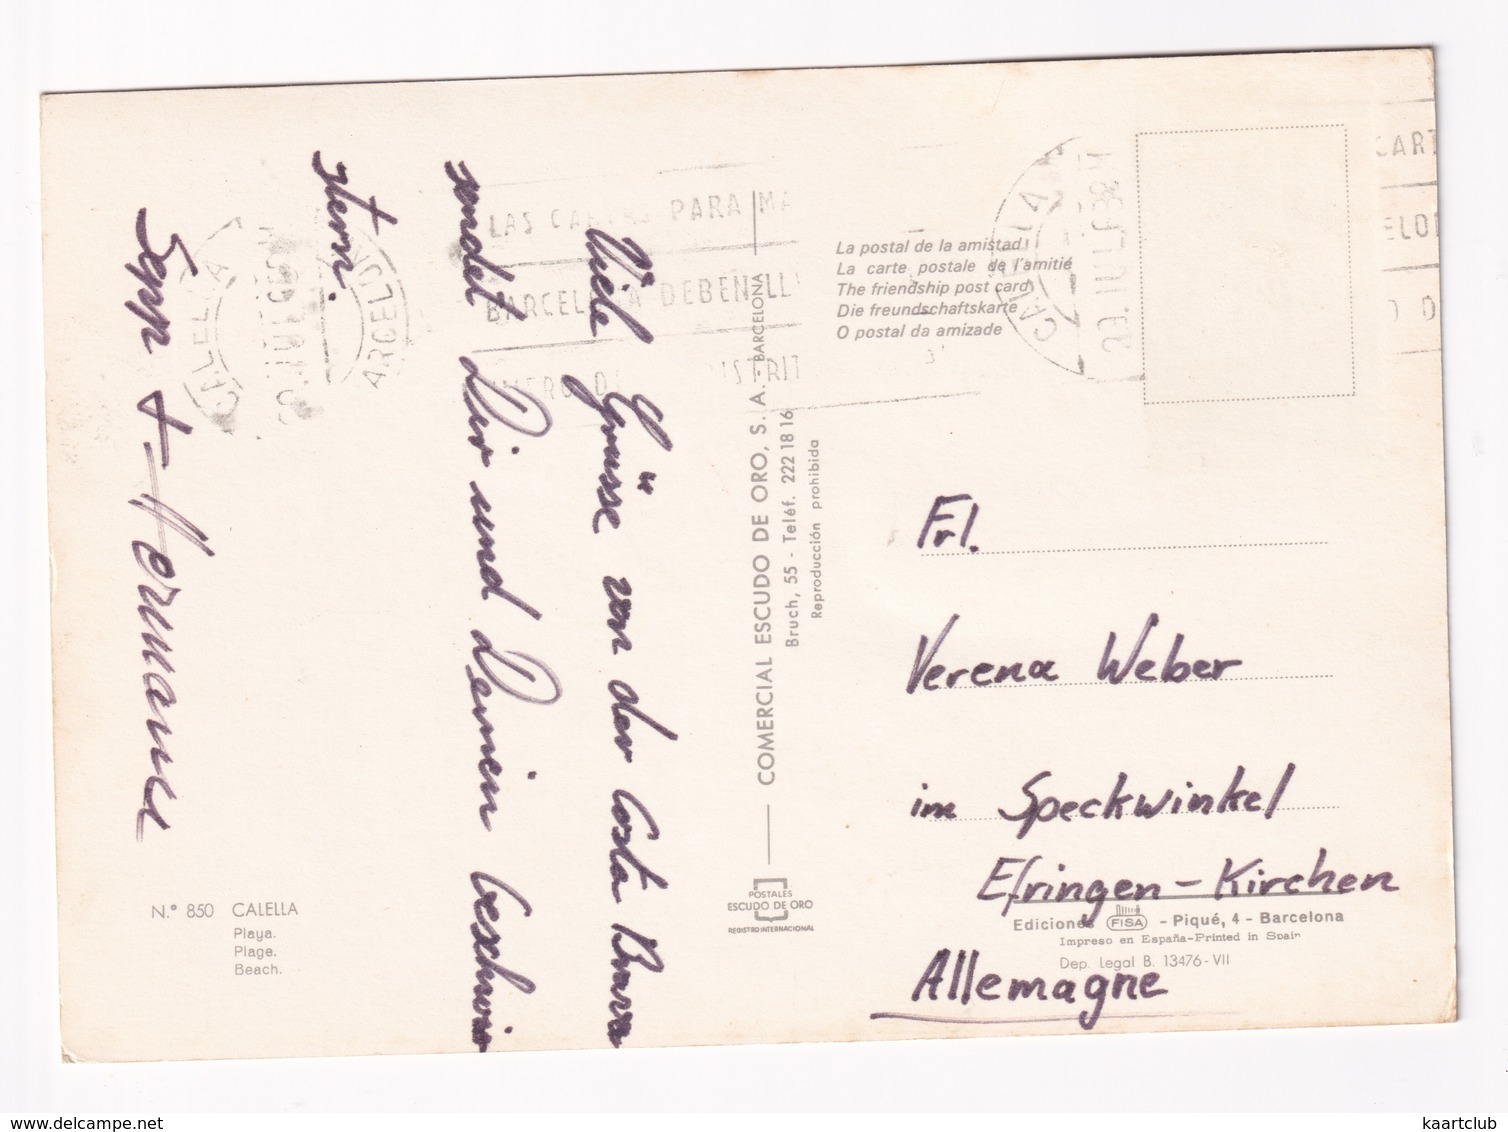 Viele Grüsse von der Costa Brava
sendet Dir und Deinen Geschwi
stern.
Sepp + Hermann
LAS CARTAS PARA MA
BARCELONA DEBEN LL
DISTRIT
CALELLA
BARCELONA
COMERCIAL ESCUDO DE ORO, S. A. - BARCELONA
Bruch, 55 - Teléf. 222 18 16
Reproducción prohibida
La postal de la amistad
La carte postale de l'amitié
The friendship post card
Die freundschaftskarte
O postal da amizade
CALELLA
CART
ELO
Frl.
Verena Weber
im Speckwinkel
Efringen-Kirchen
Allemagne
N.° 850 CALELLA
Playa.
Plage.
Beach.
POSTALES
ESCUDO DE ORO
REGISTRO INTERNACIONAL
Ediciones FISA - Piqué, 4 - Barcelona
Impreso en España-Printed in Spain
Dep. legal B. 13476-VII
delcampe.net
kaartclub